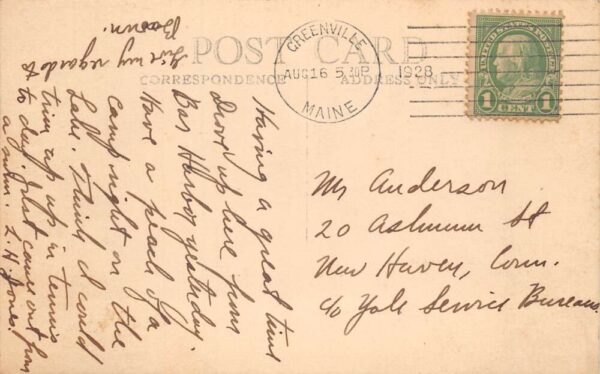 POST CARD
CORRESPONDENCE
ADDRESS ONLY
GREENVILLE
AUG 16 5 30P
1928
MAINE
UNITED STATES POSTAGE
1 CENT 1
Having a great time
Drove up here from
Bar Harbor yesterday.
Have a peach of a
camp right on the
Lake. Think I could
trim up in tennis
to day. Just came out from
a swim. L. H. Jones.
Give my regards to
Mr Anderson
20 Ashmun St
New Haven, Conn.
c/o Yale Service Bureau.